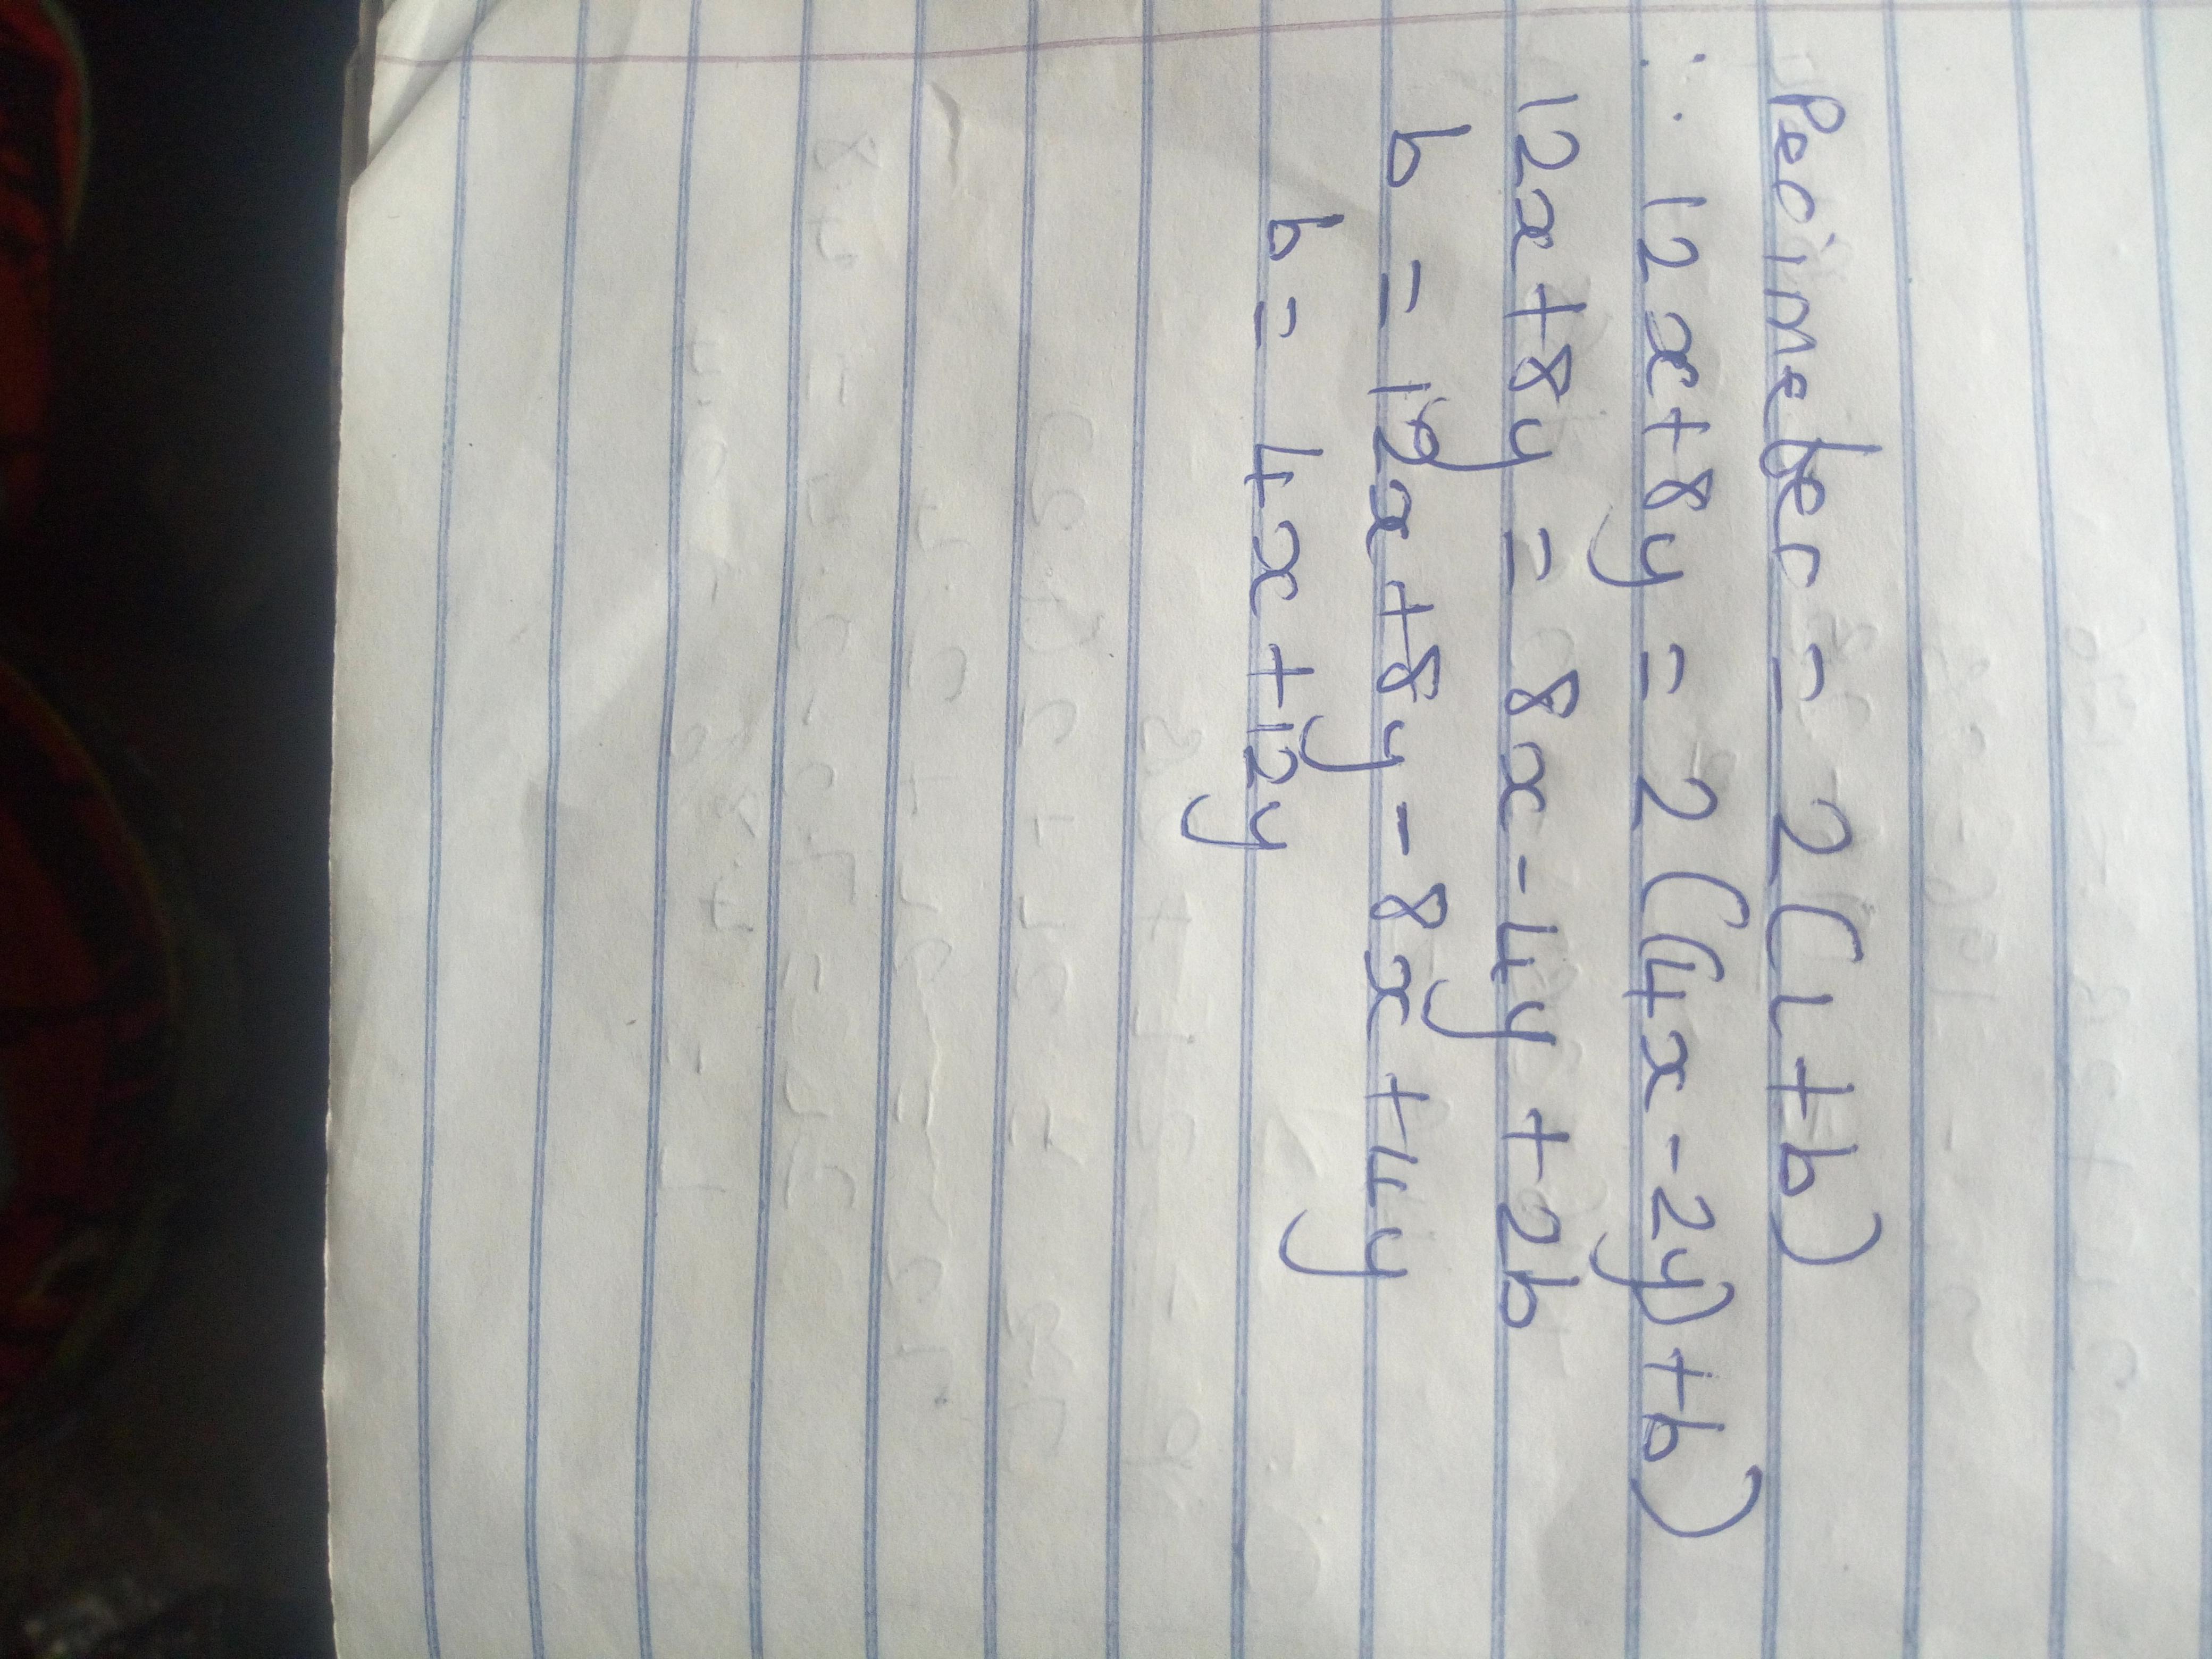 Perimeter = 2(L+b)
∴ 12x+8y = 2((4x-2y)+b)
12x+8y = 8x-4y+2b
b = 12x+8y-8x+4y
b = 4x+12y